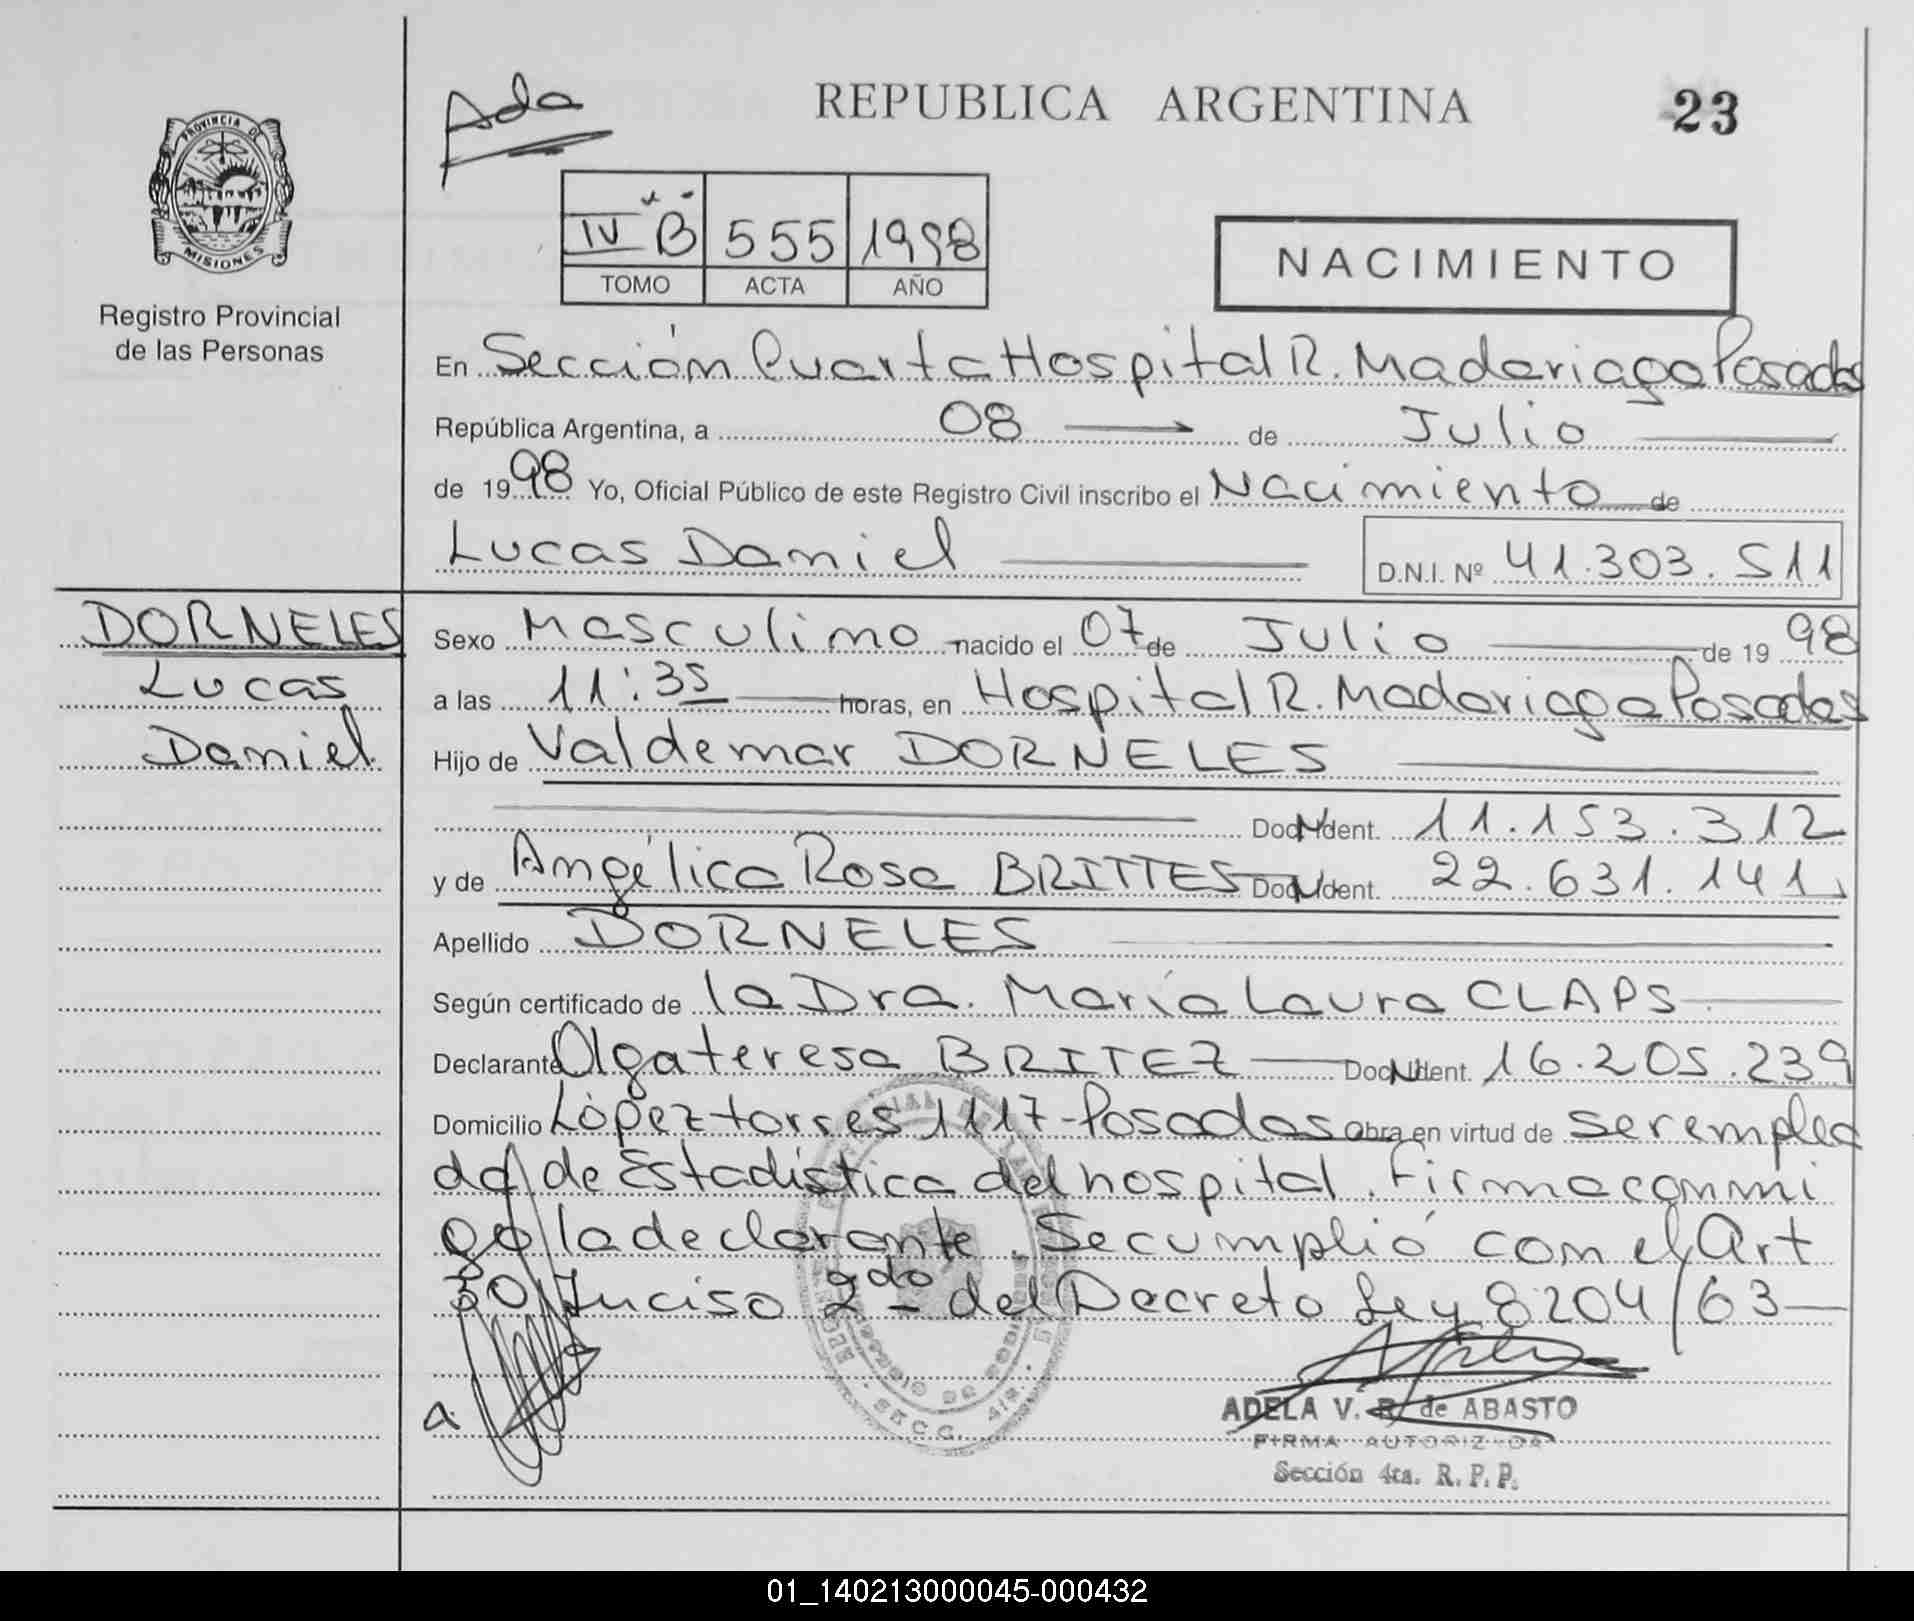 Ada
REPUBLICA ARGENTINA
23
PROVINCIA DE
MISIONES
Registro Provincial
de las Personas
IV "B" 555 1998
TOMO ACTA AÑO
NACIMIENTO
En Sección Cuarta Hospital R. Madariaga Posadas
República Argentina, a 08 de Julio
de 1998 Yo, Oficial Público de este Registro Civil inscribo el Nacimiento de
Lucas Daniel D.N.I. Nº 41.303.511
DORNELES
Lucas
Daniel
Sexo Masculino nacido el 07 de Julio de 1998
a las 11:35 horas, en Hospital R. Madariaga Posadas
Hijo de Valdemar DORNELES
Doc. Ident. 11.153.312
y de Angélica Rosa BRITTES Doc. Ident. 22.631.141
Apellido DORNELES
Según certificado de la Dra. María Laura CLAPS
Declarante Olga teresa BRITEZ Doc. Ident. 16.205.239
Domicilio López torres 1117-Posadas obra en virtud de ser emplea
da de Estadística del hospital. Firma conmi
go la declarante. Se cumplió con el Art
30 Inciso 2do del Decreto Ley 8204/63
a
ADELA V. R. de ABASTO
FIRMA AUTORIZADA
Sección 4ta. R. P. P.
SECC. 4ta.
01_140213000045-000432